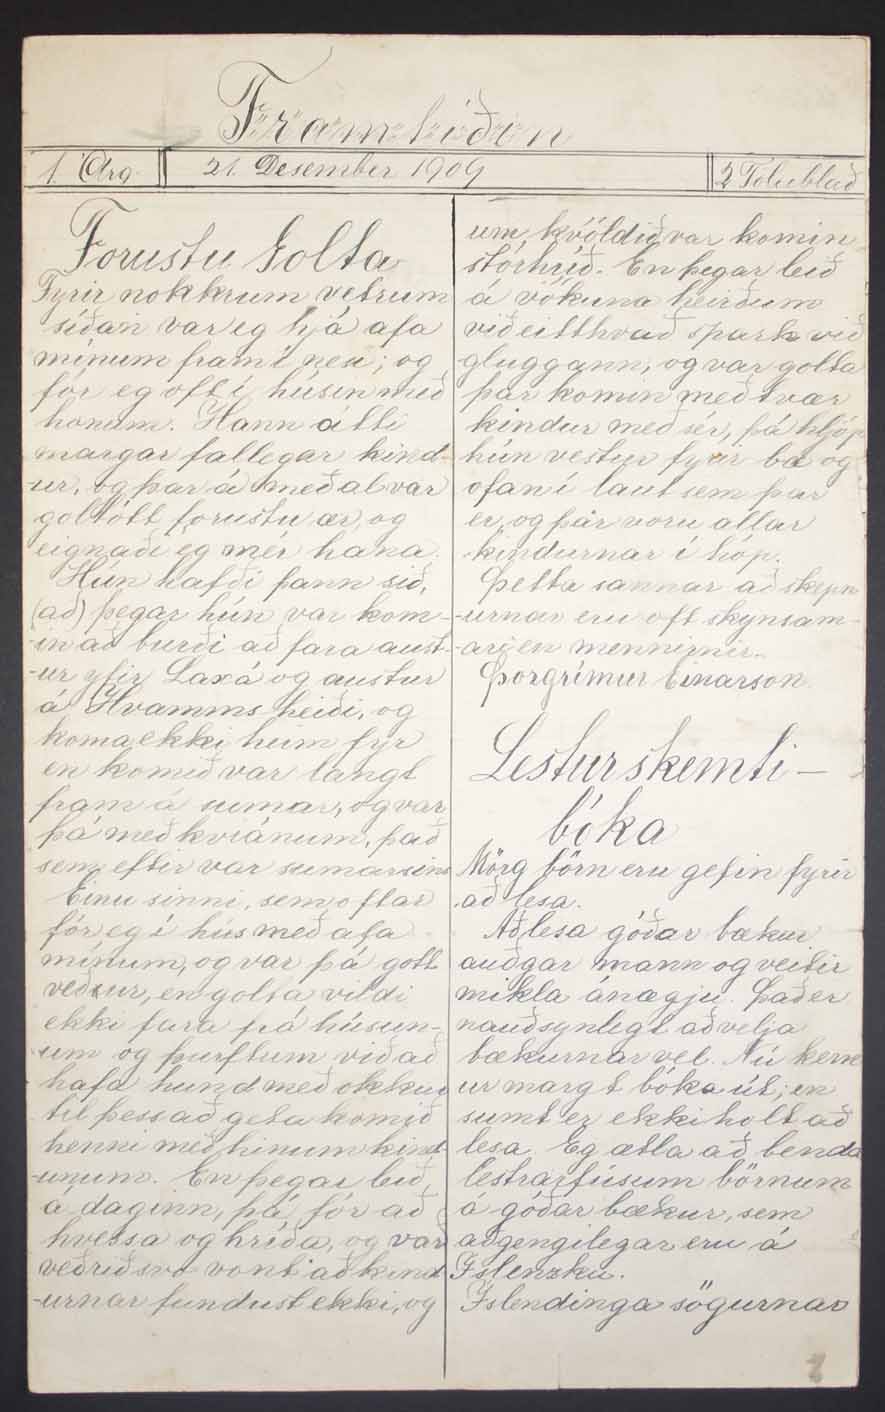 Framtíðin
1. Árg.
21. Desember 1909
2 Tölublað
Forustu Golta
Fyrir nokkrum vetrum
síðan var eg hjá afa
mínum fram í nesi; og
fór eg oft í húsin með
honum. Hann átti
margar fallegar kind-
-ur, og þar á meðal var
goltótt forustu ær, og
eignaði ég mér hana.
Hún hafði þann sið,
(að) þegar hún var kom-
-in að burði að fara aust-
-ur yfir Laxá og austur
á Hvammsheiði, og
koma ekki heim fyr
en komið var langt
fram á sumar, og var
þá með kviánum, það
sem eftir var sumarsins
Einu sinni, sem oftar
fór eg í hús með afa
mínum, og var þá gott
veður, en golta vildi
ekki fara frá húsun-
-um og þurftum við að
hafa hund með okkur
til þess að geta komið
henni með hinum kind
-unum. En þegar leið,
á daginn, þá fór að
hvessa og hríða, og var
veðrið svo vont að kind
-urnar fundust ekki, og
um kvöldið var komin
stórhríð. En þegar leið
á vökuna heirðum
við eitthvað spark við
gluggann, og var golta
þar komin með tvær
kindur með sér, þá hljóp
hún vestur fyrir bæ og
ofan í laut sem þar
er, og þar voru allar
kindurnar í hóp.
Þetta sannar að skepn
-urnar eru oft skynsam-
-ari en mennirnir.
Þorgrímur Einarson.
Lestur skemti-
bóka
Mörg börn eru gefin fyrir
að lesa.
Að lesa góðar bækur,
auðgar mann og veitir
mikla ánægju. Það er
nauðsynlegt að velja
bækurnar vel. Nú kem
ur margt bóka út; en
sumt er ekki holt að
lesa. Eg ætla að benda
lestrarfúsum börnum
á góðar bækur, sem
aðgengilegar eru á
Íslenzku.
Íslendinga sögurnar